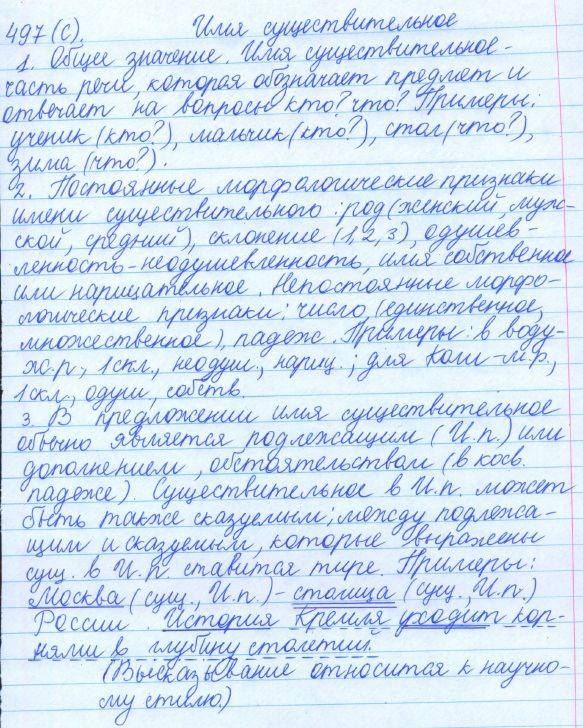 497(с). Имя существительное
1. Общее значение. Имя существительное-
часть речи, которая обозначает предмет и
отвечает на вопросы кто? что? Примеры:
ученик (кто?), мальчик (кто?), стол (что?),
зима (что?).
2. Постоянные морфологические признаки
имени существительного: род (женский, муж-
ской, средний), склонение (1, 2, 3), одушев-
ленность-неодушевленность, имя собственное
или нарицательное. Непостоянные морфо-
логические признаки: число, (единственное,
множественное), падеж. Примеры: в воду-
ж.р., 1 скл., неодуш., нариц.; для Коли -м.р.,
1 скл., одуш., собств.
3. В предложении имя существительное
обычно является подлежащим (И.п.) или
дополнением, обстоятельством (в косв.
падеже). Существительное в И.п. может
быть также сказуемым; между подлежа-
щим и сказуемым, которые выражены
сущ. в И.п. ставится тире. Примеры:
Москва (сущ., И.п.) - столица (сущ., И.п.)
России. История Кремля уходит кор-
нями в глубину столетий.
(Высказывание относится к научно-
му стилю.)